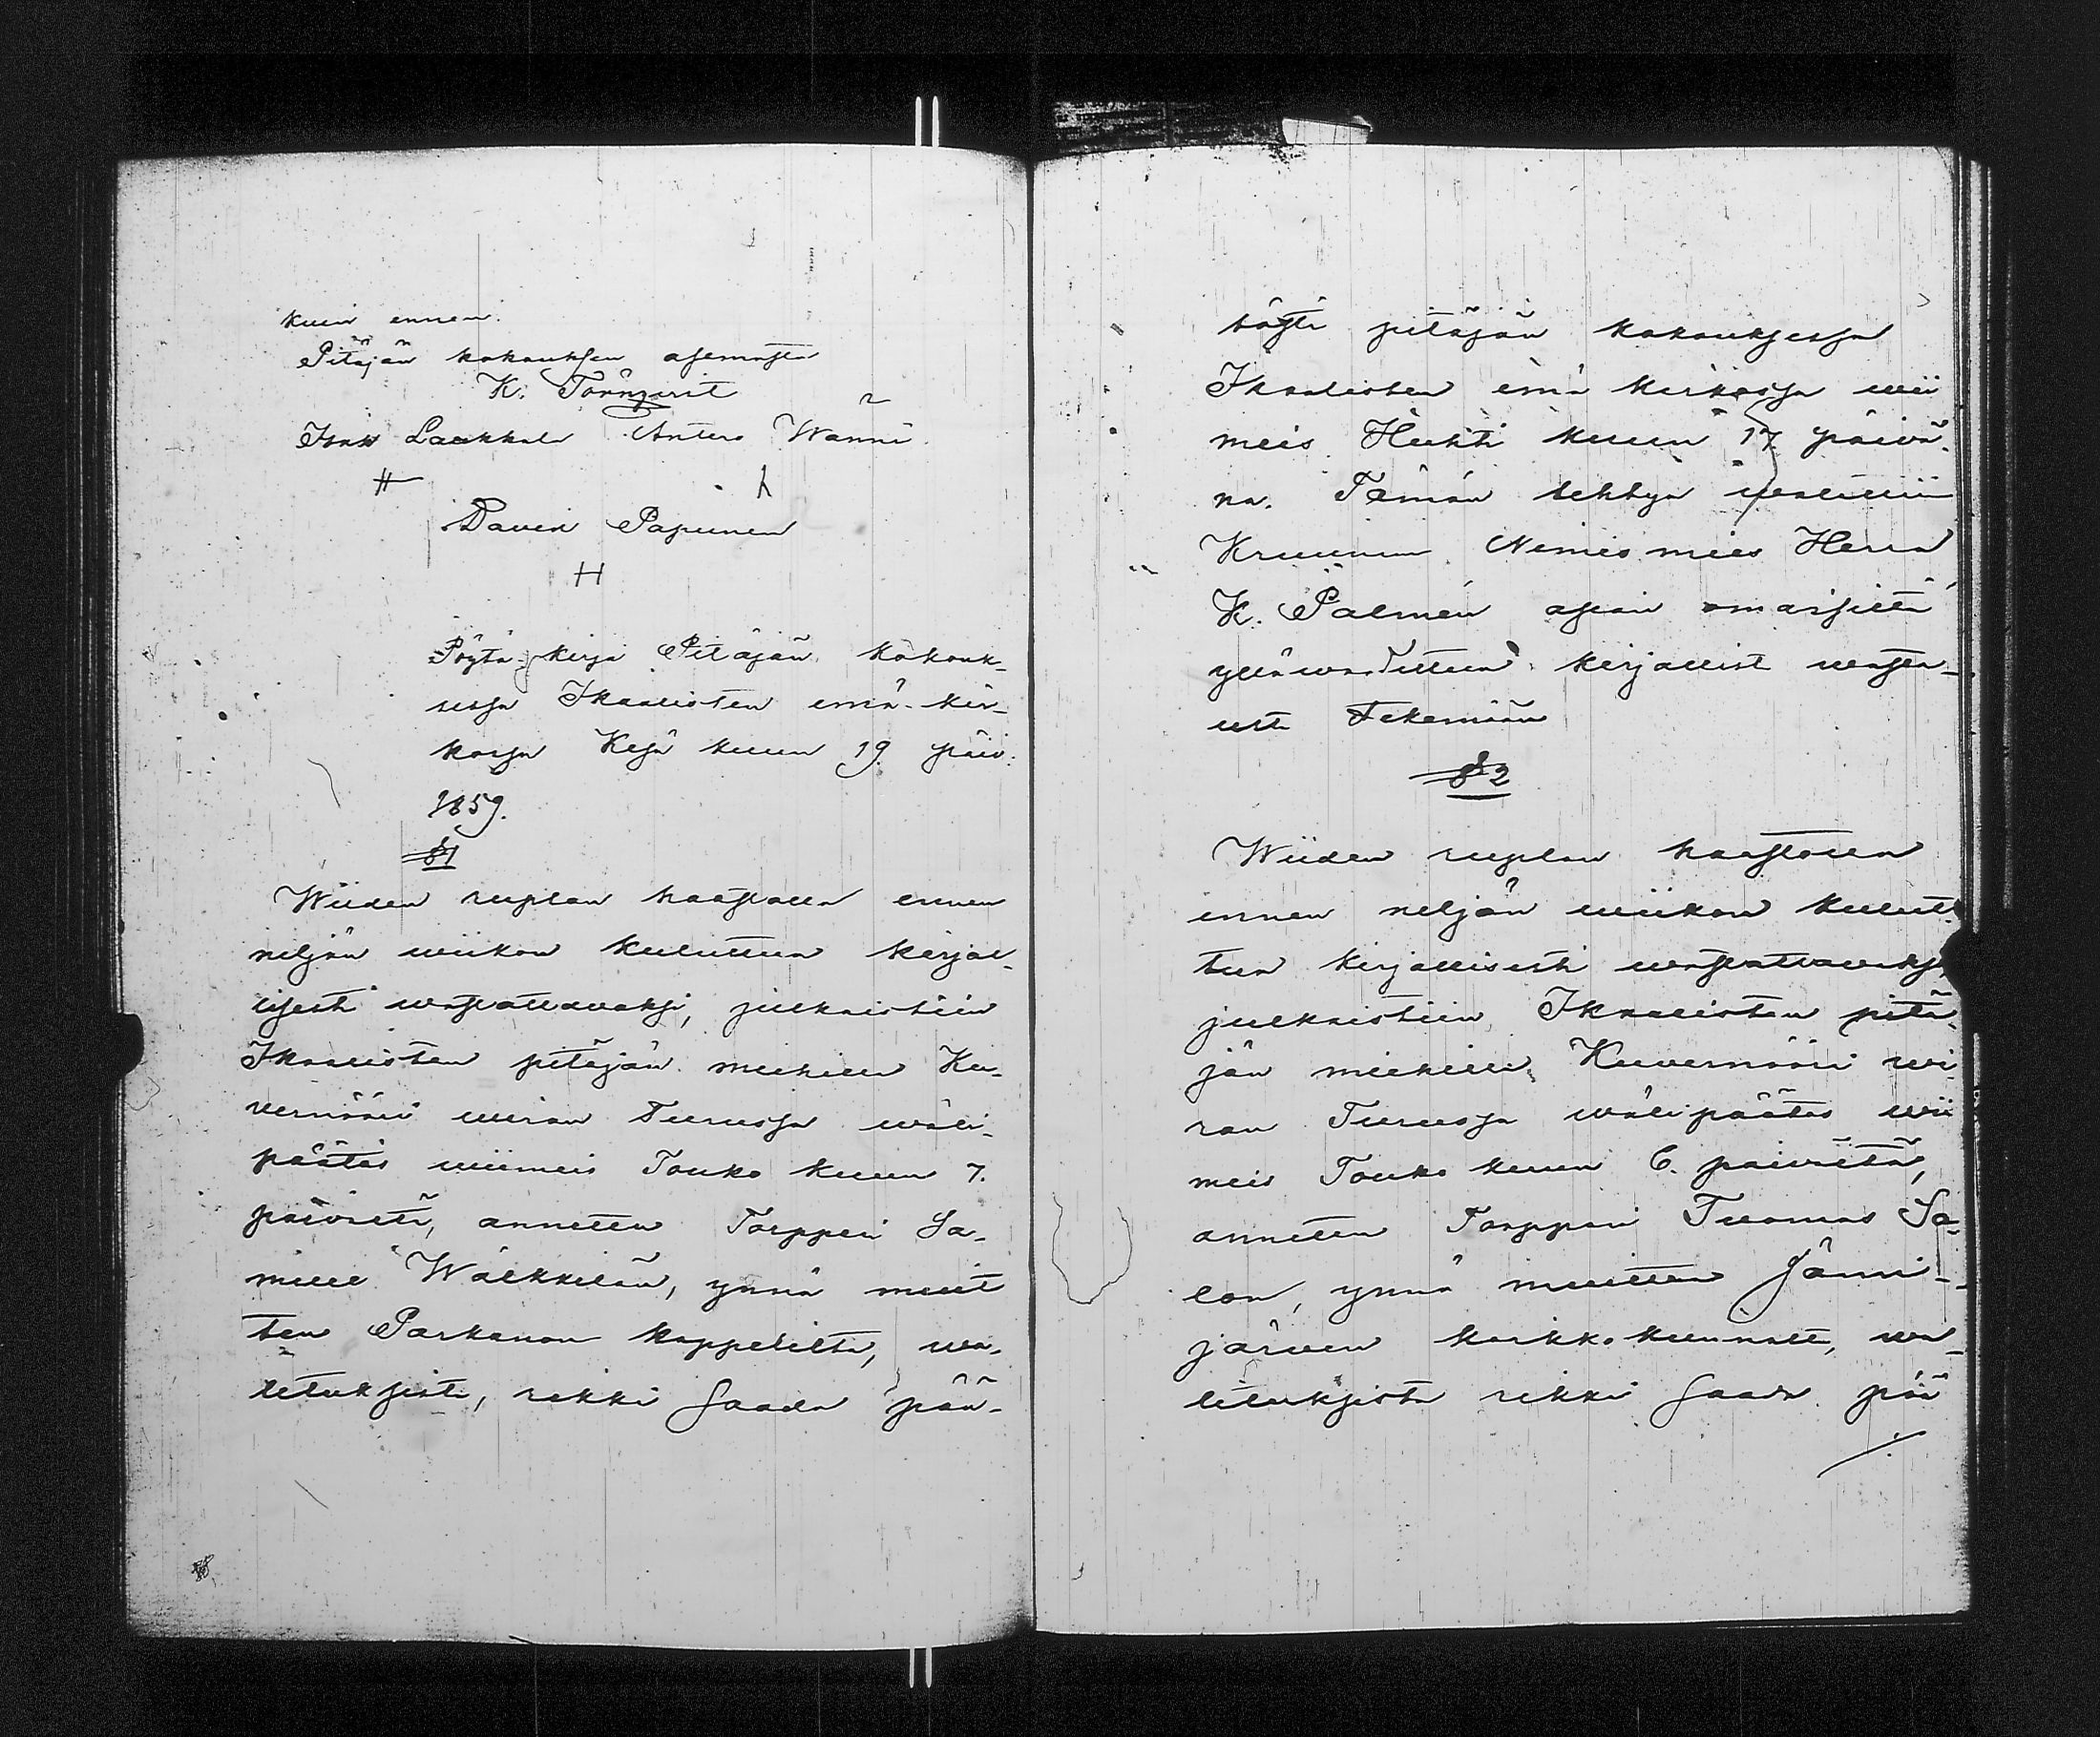 kuin ennen.
Pitäjän kokouksen asemasta
K. Törnqvist
Isak Laakkala Antero Wänni
David Papunen
Pöytä-kirja Pitäjän kokouk-
sessa Ikaalisten emä-kir-
kossa Kesä kuun 19 päiv.
1859.
§1
Wiiden ruplan haastolla ennen
neljän wiikon kuluttua kirjal-
lisesti wastattavaksi, julkaistiin
Ikaalisten pitäjän miehille Ku-
vernööri wiran Turussa wäli-
päätös wiimeis Touko kuun 7.
päivältä, annettu Torppari Sa-
muel Wälkkilän, ynnä muit
ten Parkanon kappelilta, wa-
lituksista, rikki Saada pää-
töstä pitäjän kokouksessa
Ikaalisten emä kirkossa wii
meis Huhti kuun 17 päivä-
nä. Tämän tehtyä
Kruunun Nimismies Herra
K. Palmén asian omaisilta
yllä wastuun kirjallist wasta-
ust Tekemään
§2
Wiiden ruplan haastolla
ennen neljän wiikon kulut
tua kirjallisesti wastattawaksi
julkaistiin Ikaalisten pitä-
jän miehille Kuvernööri wi-
ran Turussa wälipäätös wii
meis Touko kuun 6. päivältä,
annettu Torppari Tuomas Sa-
lon, ynnä muitten Jämi-
järven kirkkokunnalt, wa-
lituksista rikki Saada pää
./.